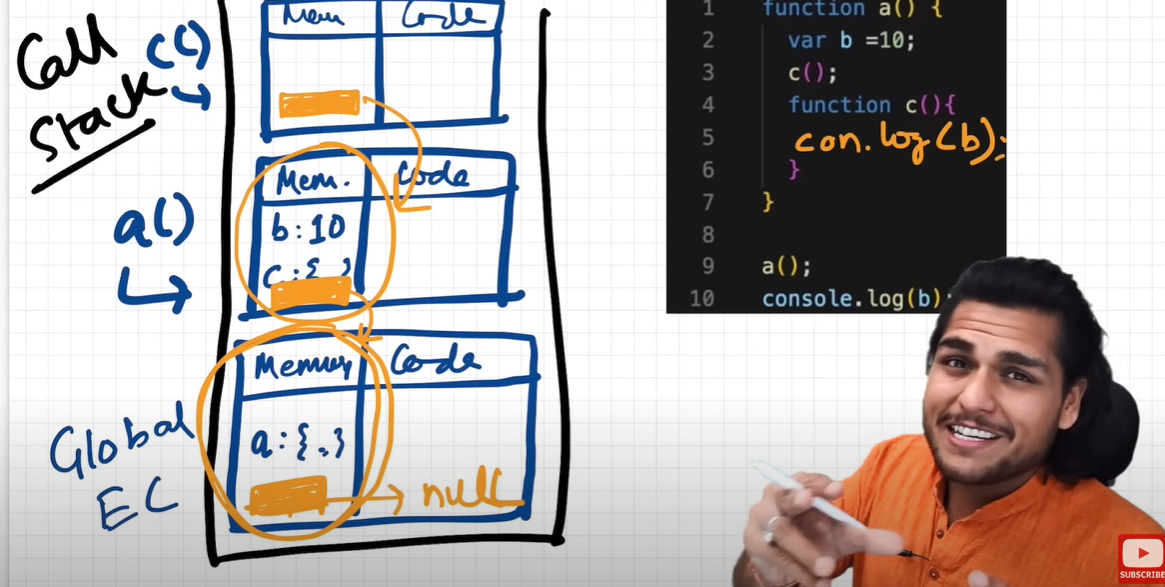 Call
Stack
c()
Mem
Code
a()
Mem.
Code
b:10
c:{ }
Global
EC
Memory
Code
a:{.}
null
1 function a() {
2 var b =10;
3 c();
4 function c(){
5 con.log(b);
6 }
7 }
8
9 a();
10 console.log(b)
SUBSCRIBE